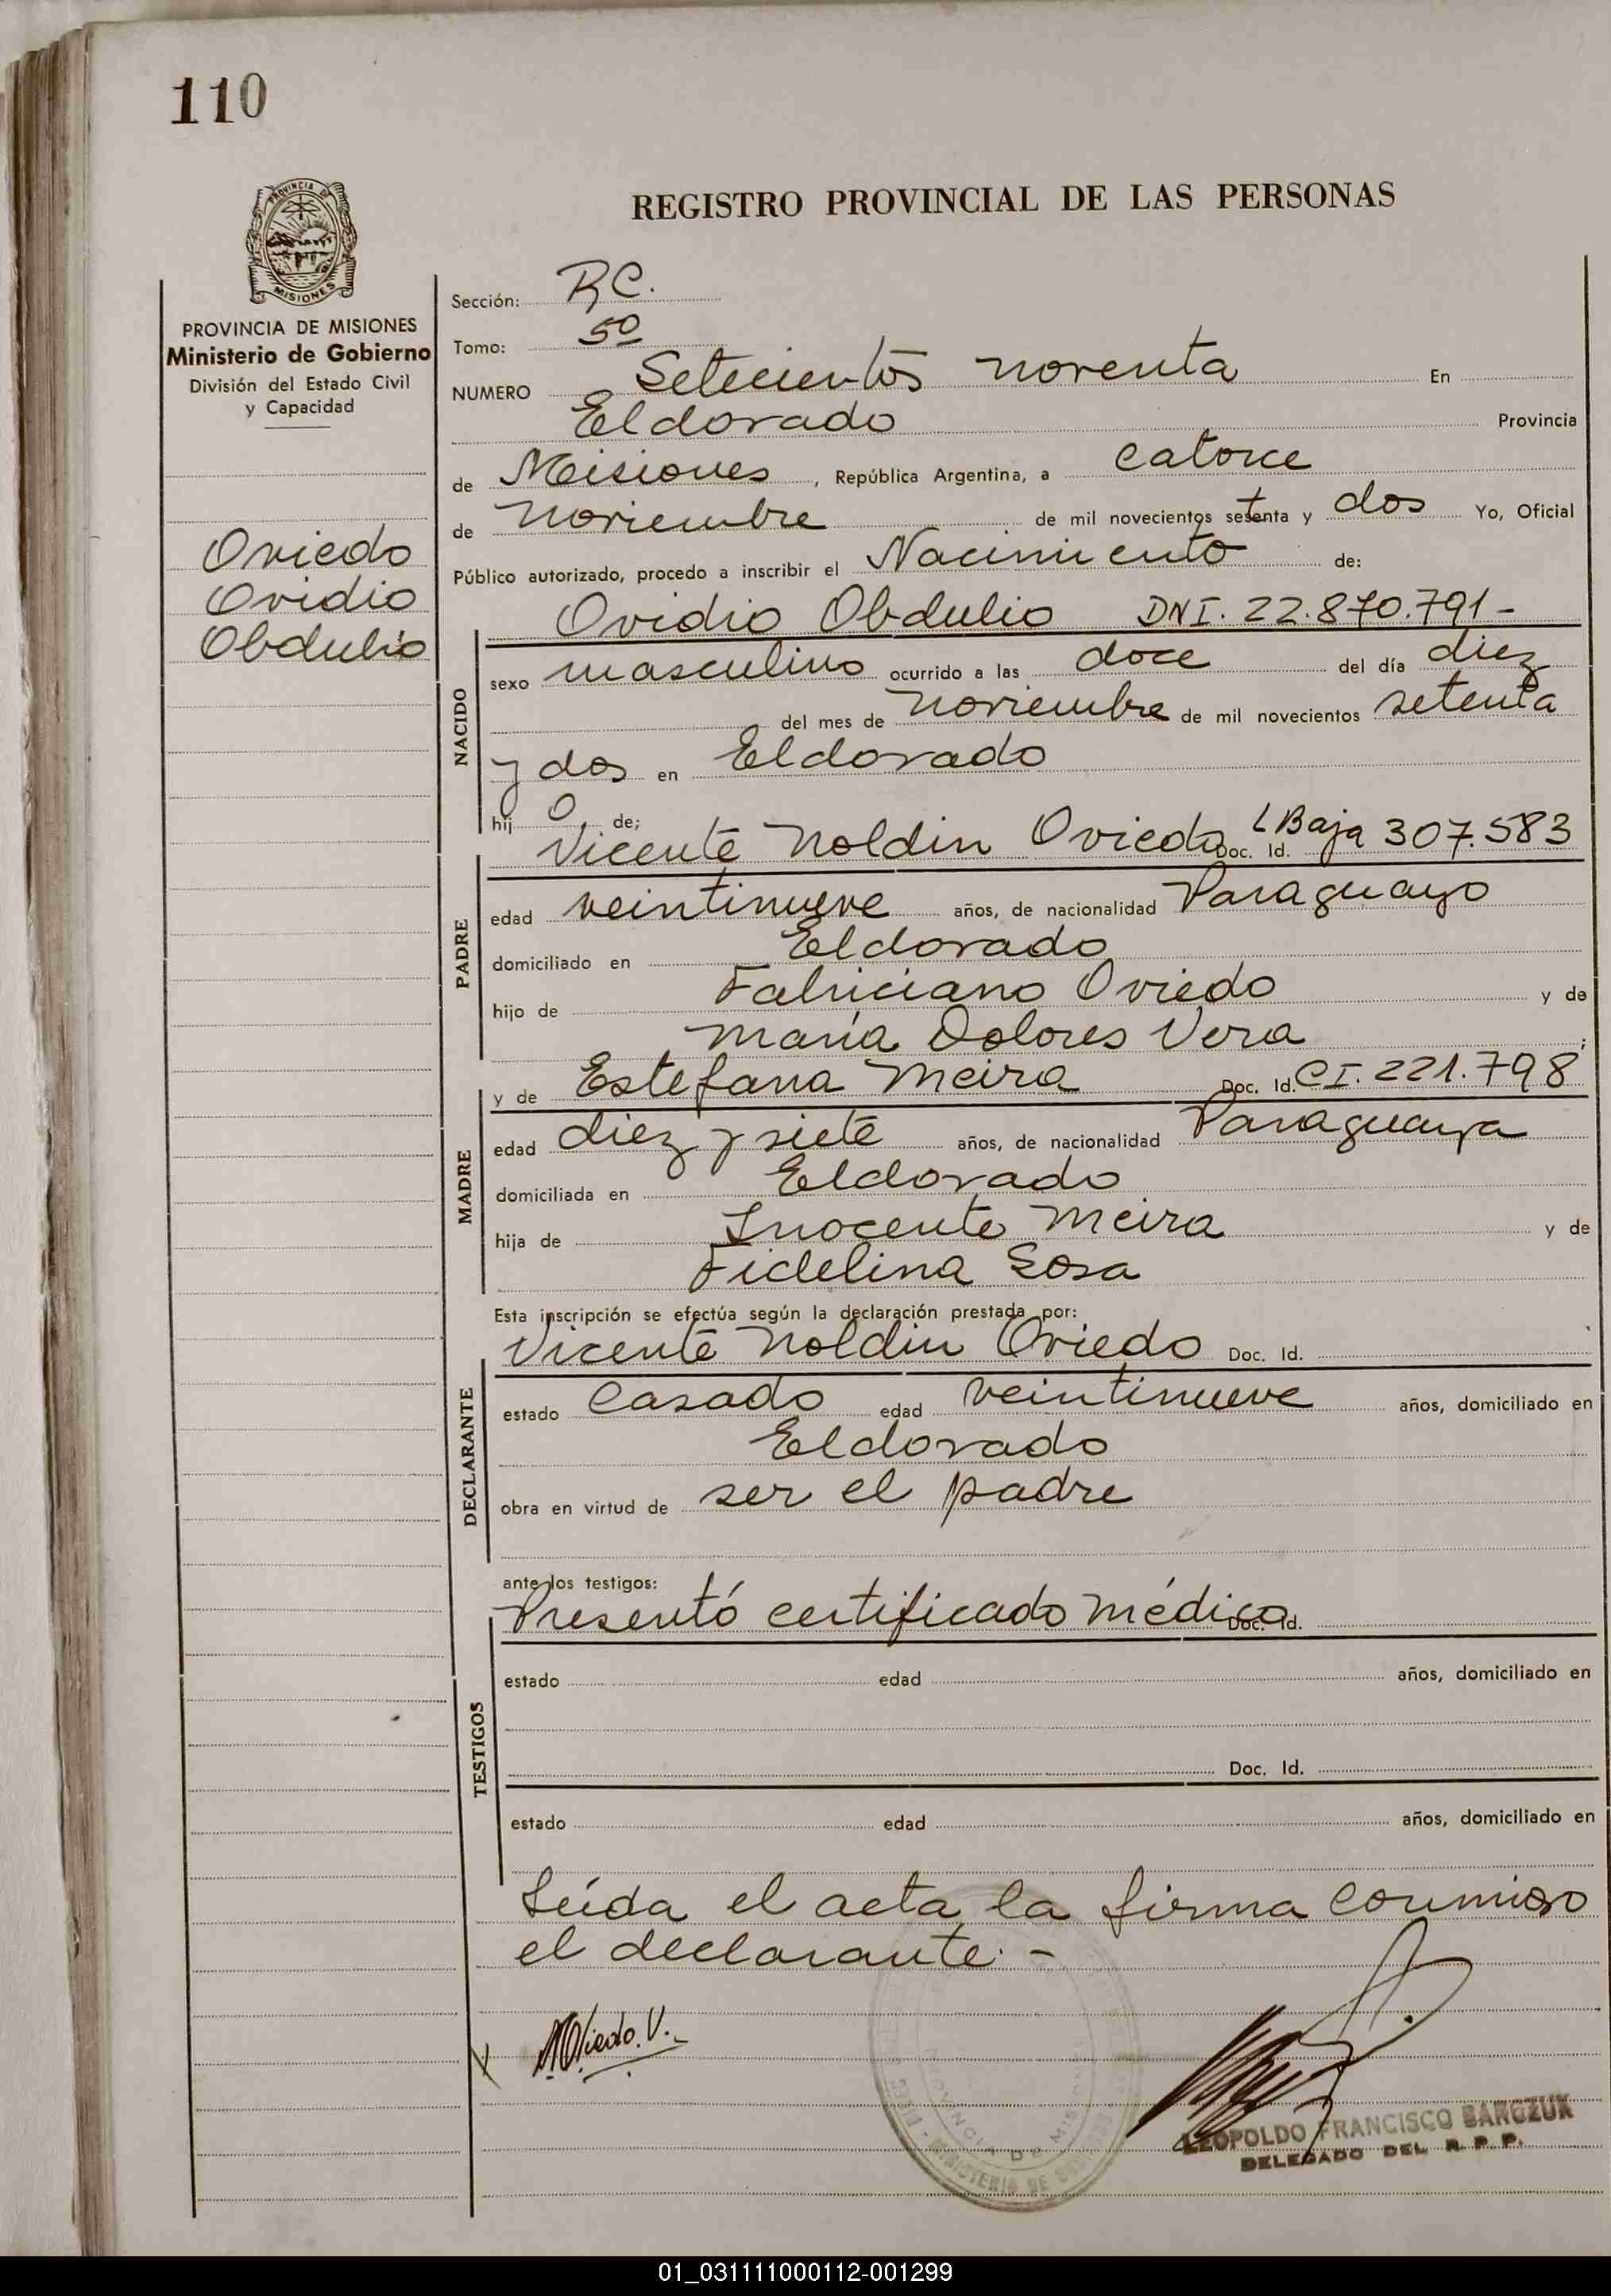 110
PROVINCIA DE MISIONES
REGISTRO PROVINCIAL DE LAS PERSONAS
PROVINCIA DE MISIONES
Ministerio de Gobierno
División del Estado Civil
y Capacidad
Oviedo
Ovidio
Obdulio
Sección: RC.
Tomo: 5º
NUMERO Setecientos noventa En
Eldorado Provincia
de Misiones, República Argentina, a catorce
de noviembre de mil novecientos setenta y dos Yo, Oficial
Público autorizado, procedo a inscribir el Nacimiento de:
Ovidio Obdulio DNI. 22.870.791-
NACIDO
sexo masculino ocurrido a las doce del día diez
del mes de noviembre de mil novecientos setenta
y dos en Eldorado
hij o de;
Vicente Noldin Oviedo Doc. Id. L Baja 307.583
PADRE
edad veintinueve años, de nacionalidad Paraguayo
domiciliado en Eldorado
hijo de Fabriciano Oviedo y de
María Dolores Vera ;
y de Estefana Meira Doc. Id. CI. 221.798
MADRE
edad diez y siete años, de nacionalidad Paraguaya
domiciliada en Eldorado
hija de Inocente Meira y de
Fidelina Sosa
Esta inscripción se efectúa según la declaración prestada por:
Vicente Noldin Oviedo Doc. Id.
DECLARANTE
estado casado edad veintinueve años, domiciliado en
Eldorado
obra en virtud de ser el padre
ante los testigos:
Presentó certificado médico Doc. Id.
TESTIGOS
estado edad años, domiciliado en
Doc. Id.
estado edad años, domiciliado en
Leída el acta la firma conmigo
el declarante.-
Oviedo. V.-
PROVINCIA DE MISIONES
MINISTERIO DE GOBIERNO
LEOPOLDO FRANCISCO BARCZUK
DELEGADO DEL R. P. P.
01_031111000112-001299